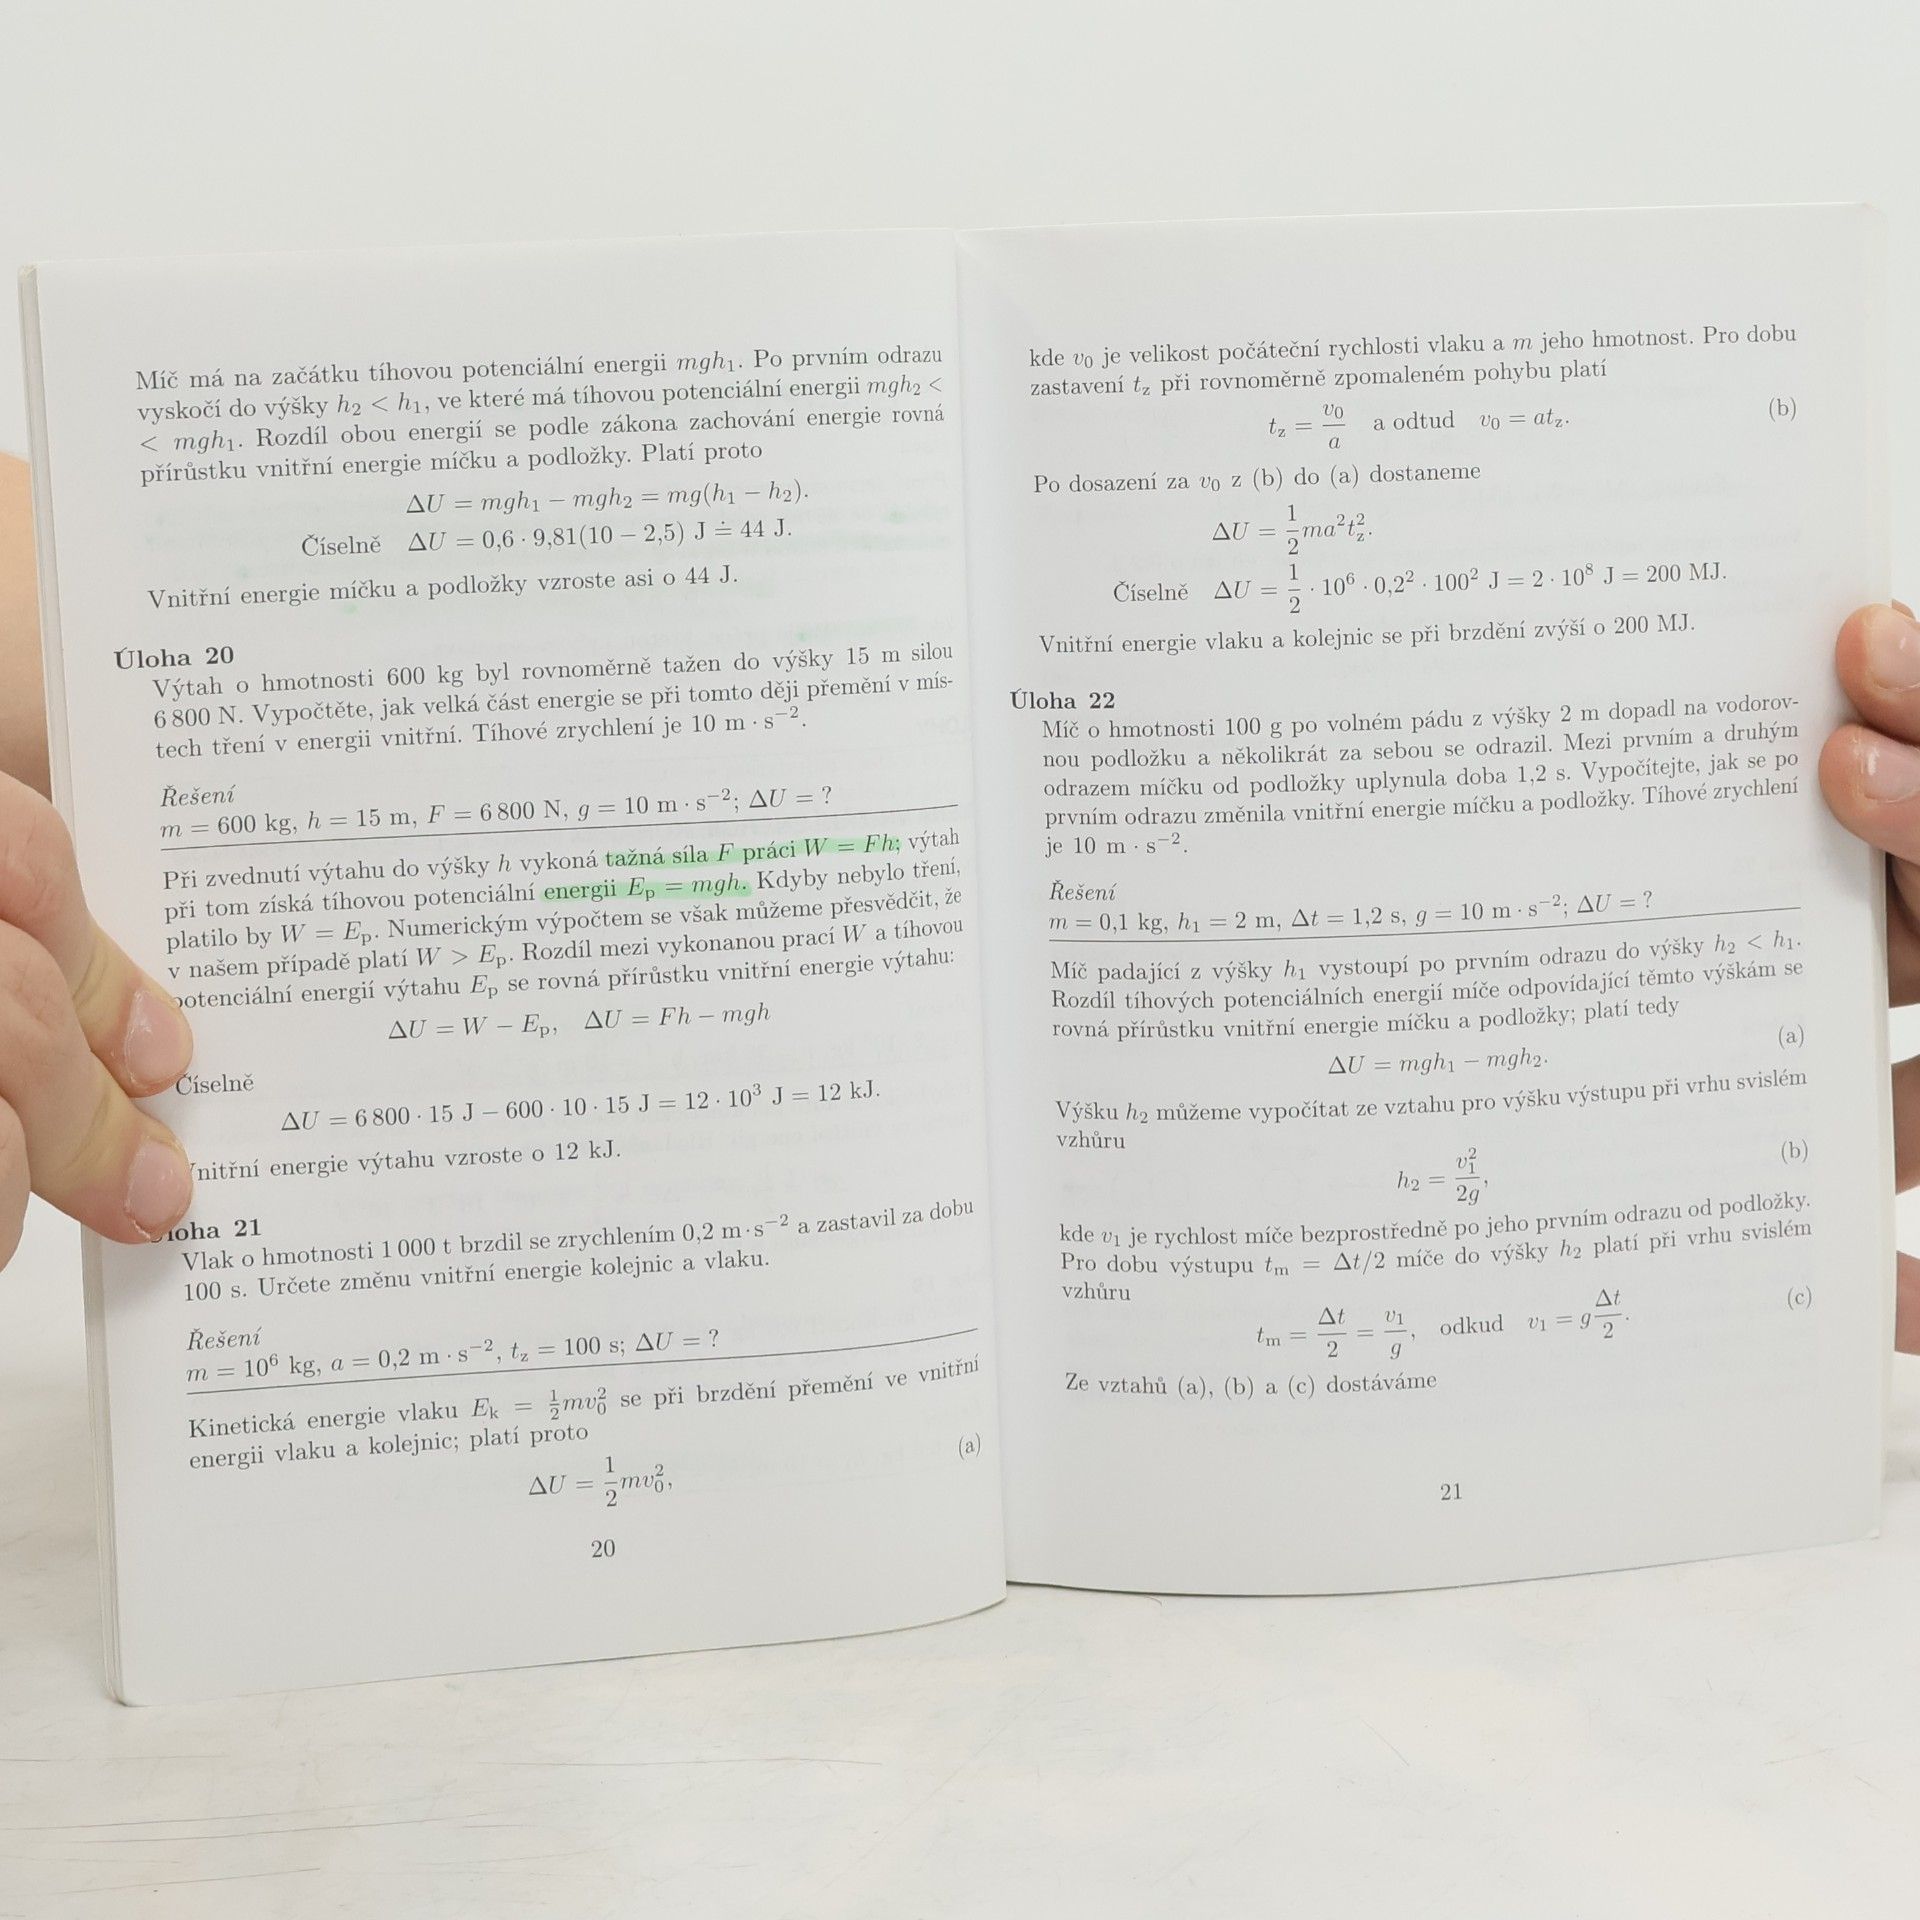 Míč má na začátku tíhovou potenciální energii mgh₁. Po prvním odrazu
vyskočí do výšky h₂ < h₁, ve které má tíhovou potenciální energii mgh₂ <
< mgh₁. Rozdíl obou energií se podle zákona zachování energie rovná
přírůstku vnitřní energie míčku a podložky. Platí proto
ΔU = mgh₁ − mgh₂ = mg(h₁ − h₂).
Číselně ΔU = 0,6 · 9,81(10 − 2,5) J ≐ 44 J.
Vnitřní energie míčku a podložky vzroste asi o 44 J.
Úloha 20
Výtah o hmotnosti 600 kg byl rovnoměrně tažen do výšky 15 m silou
6 800 N. Vypočtěte, jak velká část energie se při tomto ději přemění v mís-
tech tření v energii vnitřní. Tíhové zrychlení je 10 m · s⁻².
Řešení
m = 600 kg, h = 15 m, F = 6 800 N, g = 10 m · s⁻²; ΔU = ?
Při zvednutí výtahu do výšky h vykoná tažná síla F práci W = Fh; výtah
při tom získá tíhovou potenciální energii Eₚ = mgh. Kdyby nebylo tření,
platilo by W = Eₚ. Numerickým výpočtem se však můžeme přesvědčit, že
v našem případě platí W > Eₚ. Rozdíl mezi vykonanou prací W a tíhovou
potenciální energií výtahu Eₚ se rovná přírůstku vnitřní energie výtahu:
ΔU = W − Eₚ, ΔU = Fh − mgh
Číselně
ΔU = 6 800 · 15 J − 600 · 10 · 15 J = 12 · 10³ J = 12 kJ.
Vnitřní energie výtahu vzroste o 12 kJ.
Úloha 21
Vlak o hmotnosti 1 000 t brzdil se zrychlením 0,2 m · s⁻² a zastavil za dobu
100 s. Určete změnu vnitřní energie kolejnic a vlaku.
Řešení
m = 10⁶ kg, a = 0,2 m · s⁻², t_z = 100 s; ΔU = ?
Kinetická energie vlaku Eₖ = ½mv₀² se při brzdění přemění ve vnitřní
energii vlaku a kolejnic; platí proto
ΔU = 1/2 mv₀², (a)
20
kde v₀ je velikost počáteční rychlosti vlaku a m jeho hmotnost. Pro dobu
zastavení t_z při rovnoměrně zpomaleném pohybu platí
t_z = v₀/a a odtud v₀ = at_z. (b)
Po dosazení za v₀ z (b) do (a) dostaneme
ΔU = 1/2 ma²t_z².
Číselně ΔU = 1/2 · 10⁶ · 0,2² · 100² J = 2 · 10⁸ J = 200 MJ.
Vnitřní energie vlaku a kolejnic se při brzdění zvýší o 200 MJ.
Úloha 22
Míč o hmotnosti 100 g po volném pádu z výšky 2 m dopadl na vodorov-
nou podložku a několikrát za sebou se odrazil. Mezi prvním a druhým
odrazem míčku od podložky uplynula doba 1,2 s. Vypočítejte, jak se po
prvním odrazu změnila vnitřní energie míčku a podložky. Tíhové zrychlení
je 10 m · s⁻².
Řešení
m = 0,1 kg, h₁ = 2 m, Δt = 1,2 s, g = 10 m · s⁻²; ΔU = ?
Míč padající z výšky h₁ vystoupí po prvním odrazu do výšky h₂ < h₁.
Rozdíl tíhových potenciálních energií míče odpovídající těmto výškám se
rovná přírůstku vnitřní energie míčku a podložky; platí tedy
ΔU = mgh₁ − mgh₂. (a)
Výšku h₂ můžeme vypočítat ze vztahu pro výšku výstupu při vrhu svislém
vzhůru
h₂ = v₁²/2g, (b)
kde v₁ je rychlost míče bezprostředně po jeho prvním odrazu od podložky.
Pro dobu výstupu tₘ = Δt/2 míče do výšky h₂ platí při vrhu svislém
vzhůru
tₘ = Δt/2 = v₁/g, odkud v₁ = g Δt/2. (c)
Ze vztahů (a), (b) a (c) dostáváme
21